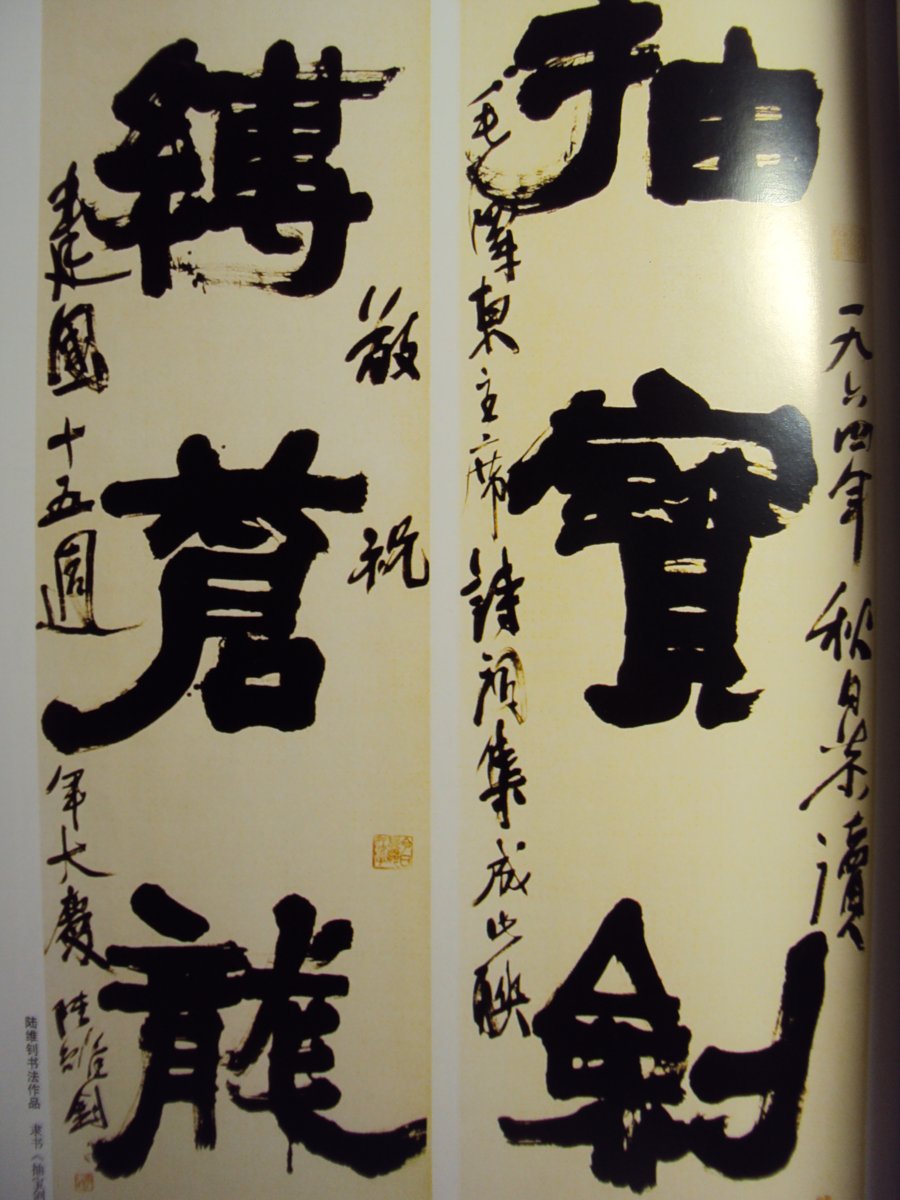 抽寶劍
一九六四年秋日某讀
毛澤東主席詩詞集成此聯
縛蒼龍
敬祝
建國十五週年大慶 陸維釗
陆维钊书法作品 隶书《抽宝剑